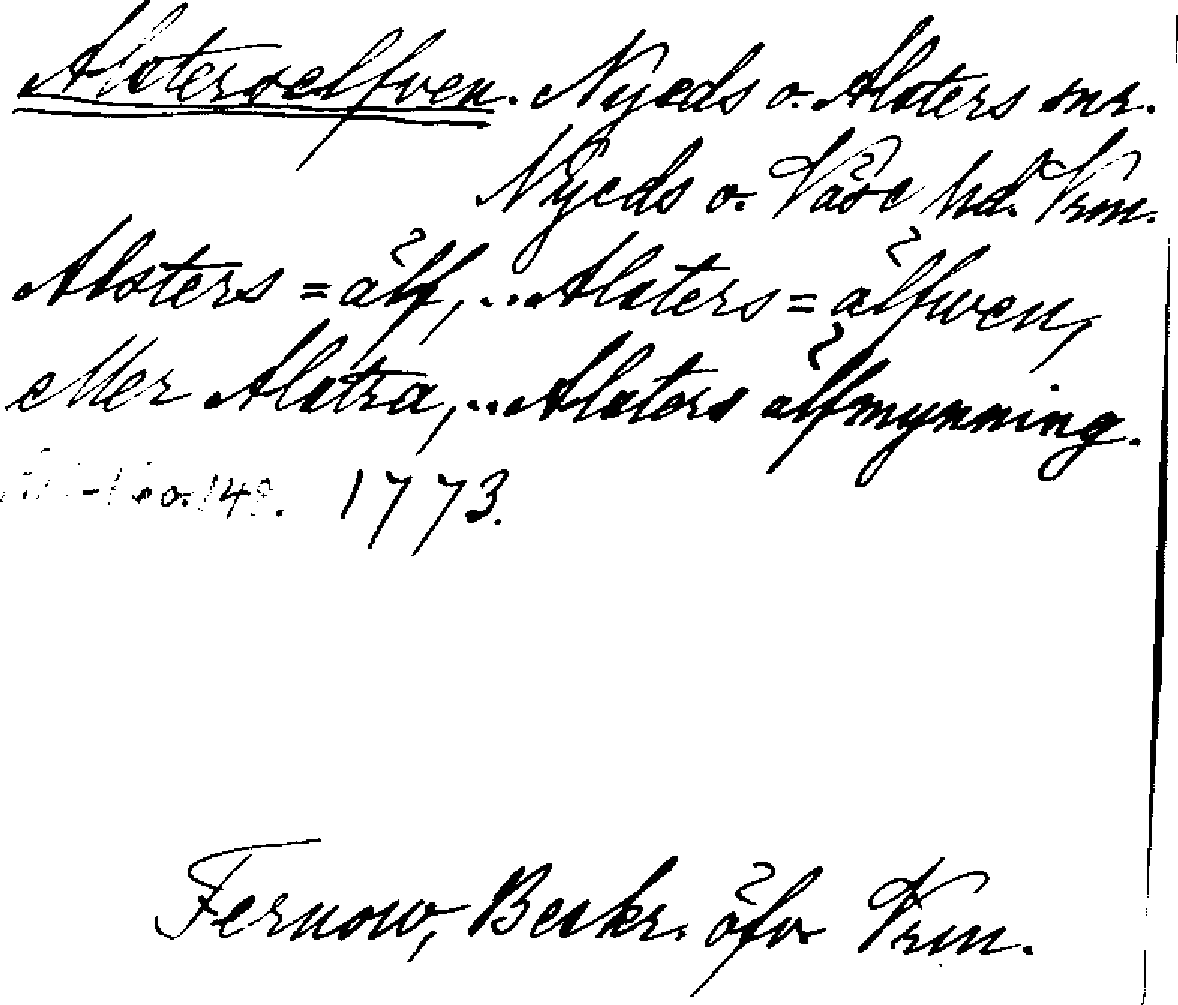 Alsterselfven. Nyeds o. Alsters snr.
Nyeds o. Väse hd. Vrm.
Alsters=älf, ... Alsters=älfwen,
eller Alstra, ... Alsters älfmynning.
149. 1773.
Fernow, Beskr. öfv Vrm.